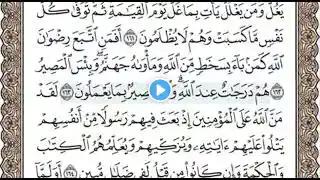 يَغُلَّ وَمَن يَغْلُلْ يَأْتِ بِمَا غَلَّ يَوْمَ ٱلْقِيَٰمَةِ ثُمَّ تُوَفَّىٰ كُلُّ
نَفْسٍ مَّا كَسَبَتْ وَهُمْ لَا يُظْلَمُونَ ١٦١ أَفَمَنِ ٱتَّبَعَ رِضْوَٰنَ
ٱللَّهِ كَمَنۢ بَآءَ بِسَخَطٍ مِّنَ ٱللَّهِ وَمَأْوَىٰهُ جَهَنَّمُ وَبِئْسَ ٱلْمَصِيرُ
١٦٢ هُمْ دَرَجَٰتٌ عِندَ ٱللَّهِ بَصِيرٌۢ بِمَا يَعْمَلُونَ ١٦٣ لَقَدْ
مَنَّ ٱللَّهُ عَلَى ٱلْمُؤْمِنِينَ إِذْ بَعَثَ فِيهِمْ رَسُولًا مِّنْ أَنفُسِهِمْ
يَتْلُوا۟ عَلَيْهِمْ ءَايَٰتِهِۦ وَيُزَكِّيهِمْ وَيُعَلِّمُهُمُ ٱلْكِتَٰبَ
وَٱلْحِكْمَةَ وَإِن كَانُوا۟ مِن قَبْلُ لَفِى ضَلَٰلٍ مُّبِينٍ ١٦٤ أَوَلَمَّآ